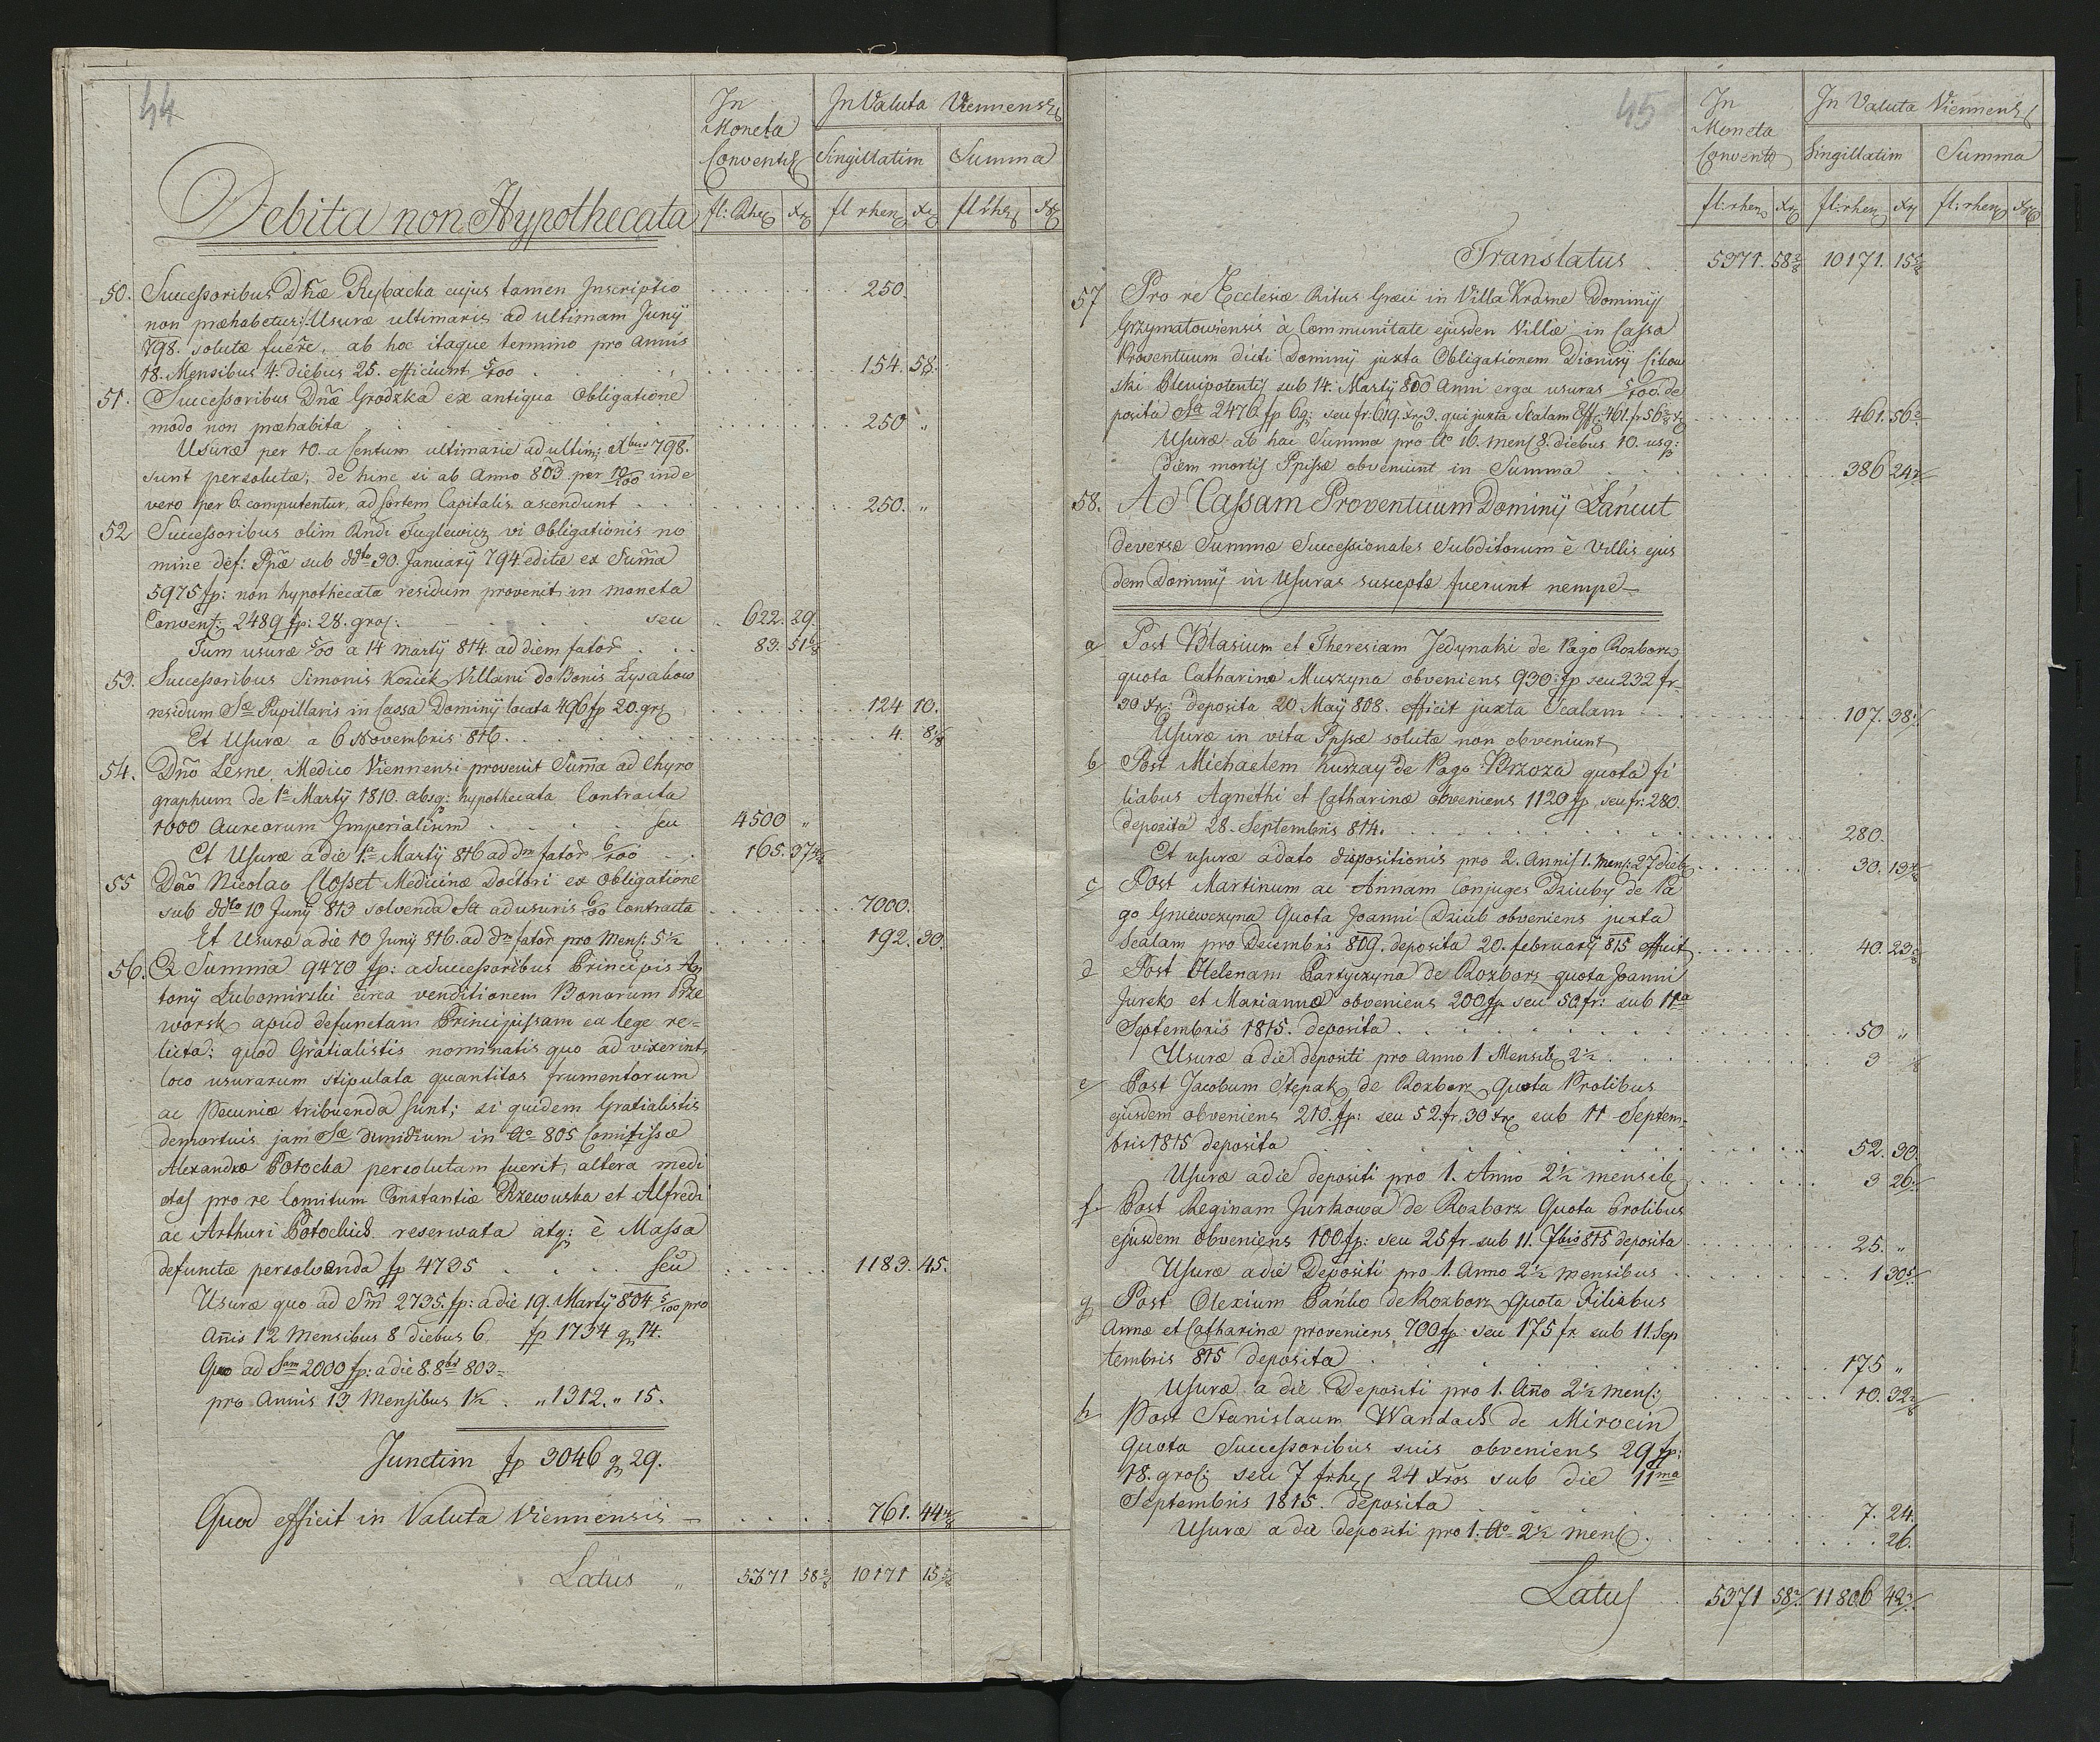 44
In
Moneta
Convent:
In Valuta Viennensi
Singillatim
Summa
fl: Rhe
xr
fl rhen
xr
fl rhe
xr
Debita non Hypothecata
50. Successoribus Dñæ Rybacka cujus tamen Inscriptio 250.
non præhabetur; Usuræ ultimaris ad ultimam Junÿ
798. solutæ fuere. ab hoc itaque termino pro annis
18. Mensibus 4. diebus 25. efficiunt 5/100 154. 58
51. Successoribus Dñæ Grodzka ex antiqua Obligatione
modo non præhabita 250 "
Usuræ per 10. a Centum ultimarie ad ultim: Xbris 798.
sunt persolutæ; de hinc si ab Anno 803 per 10/100 inde
vero per 6. computentur, ad sortem Capitalis ascendunt 250. "
52 Successoribus olim Rndi Fuglewicz vi Obligationis no
mine def: Ppæ sub ddto 30. Januarÿ 794 editæ ex Suma
5975 fp: non hypothecata residum provenit in moneta
Convent: 2489 fp: 28. gros: seu 622. 29.
Tum usuræ 5/100 a 14 Martÿ 814. ad diem fator 83. 51 6/8
53. Successoribus Simonis Koziek Villani do Bonis Łysakow
residum Sæ Pupillaris in Cassa Dominÿ locata 496 fp 20. grs 124 10.
Et Usuræ a 6 Novembris 816. 4. 8
54. Dño Lesne Medico Viennensi provenit Suma ad Chyro
graphum de 1a Martÿ 1810. absq: hypothecata Contracta
1000 Aureorum Imperialium seu 4500 "
Et Usuræ a die 1a Martÿ 816 ad dm fator 6/100 165. 37 4/8
55 Dño Nicolao Closset Medicinæ Doctori ex Obligatione
sub ddto 10 Junÿ 813 solvenda Sa ad usuris 6/100 Contracta 7000.
Et Usuræ a die 10 Junÿ 816. ad dm fator pro Mens: 5 1/2 192. 30.
56. Ex Summa 9470 fp: a successoribus Principis An
tonÿ Lubomirski circa venditionem Bonorum Prze
worsk apud defunctam Principissam ea lege re=
licta; quod Gratialistis nominatis quo ad vixerint,
loco usurarum stipulata quantitas frumentorum
ac Pecuniæ tribuenda sunt; si quidem Gratialistis
demortuis jam Sæ dimidium in Ao 805 Comitissæ
Alexandræ Potocka persolutam fuerit, altera medi
etas pro re Comitum Constantiæ Rzewuska et Alfredi
ac Arthuri Potockich reserwata atq: è Massa
defunctæ persolvenda fp 4735 seu 1183. 45.
Usuræ quo ad Sm 2735. fp: a die 19. Martÿ 804 5/100 pro
Añis 12 Mensibus 8 diebus 6. fp 1734 g 14.
Quo ad Sum 2000 fp: a die 8. 8br 803=
pro Annis 13 Mensibus 1 1/2 . " 1312. " 15.
Junctim fp 3046 g 29.
Quod efficit in Valuta Viennensis 761. 44 4/8
Latus " 5371 58 2/8 10171 15 5/8
45
In
Moneta
Convent
In Valuta Viennens
Singillatim
Summa
fl: rhen
xr
fl: rhen
xr
fl: rhen
xr
Translatus 5371. 58 2/8 10171. 15 5/8
57 Pro re Ecclesiæ Ritus Græci in Villa Krasne Dominÿ
Grzymałowiensis à Communitate ejusdem Villæ in Cassa
Proventuum dicti Dominÿ juxta Obligationem Dionisÿ
ski Plenipotentis sub 14. Martÿ 800 Anni erga usuras 5/100 de
posita Sa 2476 fp 6 g: seu fr: 619. xr 3. qui juxta Scalam Eff: 461. fr 56 2/8 x 461. 56 2/8
Usuræ ab hac Summa pro Ao 16. mens 8. diebus 10. usq:
diem mortis Ppissæ obveniunt in Summa 386 24
58. Ad Cassam Proventuum Dominÿ Łańcut
deversæ Summæ Successionales Subditorum è Villis ejus
dem Dominÿ in Usuras susceptæ fuerunt nempe
a Post Blasium et Theresiam Jedynaki de Pago Rozborz
quota Catharinæ Muszyna obveniens 930 fp seu 232 fr.
30 xr: deposita 20 Maÿ 808. efficit juxta Scalam 107. 38
Usuræ in vita Ppissæ solutæ non obveniunt
b Post Michaelem Kuszay de Pago Brzoza quota fi
liabus Agnethi et Catharinæ obveniens 1120 fp, seu fr: 280.
deposita 28. Septembris 814. 280.
Et usuræ a dato dispositionis pro 2. Annis 1. mens: 27 dieb 30. 13
c Post Martinum ac Annam Conjuges Dziuby de Pa
go Gniewczyna Quota Joanni Dziub obveniens juxta
Scalam pro Decembris 809. deposita 20. februarÿ 815 efficit 40. 23
d Post Helenam Partyczyna de Rozborz quota Joanni
Jurek et Mariannæ obveniens 200 fp seu 50. fr: sub 11a
Septembris 1815. deposita 50 "
Usuræ a die depositi pro anno 1 Mensib 2 1/2 3
e Post Jacobum Stepak de Rozborz Quota Prolibus
ejusdem obveniens 210. fp: seu 52. fr, 30 xr sub 11 Septem
bris 1815 deposita 52. 30.
Usuræ a die depositi pro 1. Anno 2 1/2 mensib 3 26
f Post Reginam Jurkowa de Rozborz Quota Prolibus
ejusdem obveniens 100 fp: seu 25 fr sub 11. 7bris 815 deposita 25. "
Usuræ a die Depositi pro 1. Anno 2 1/2 mensibus 1 30
g Post Olexium Pańko de Rozborz Quota Filiabus
Annæ et Catharinæ proveniens 700 fp: seu 175 fr sub 11. Sep
tembris 815 deposita 175 "
Usuræ a die Depositi pro 1. Año 2 1/2 mens: 10. 32
h Post Stanislaum Wandach de Mirocin
Quota Successoribus suis obveniens 29 fp:
18. gros: seu 7 fr he 24 xros sub die 11ma
Septembris 1815. deposita 7. 24.
Usuræ a die depositi pro 1. Ao 2 1/2 mens. 26.
Latus 5371 58 11806 42